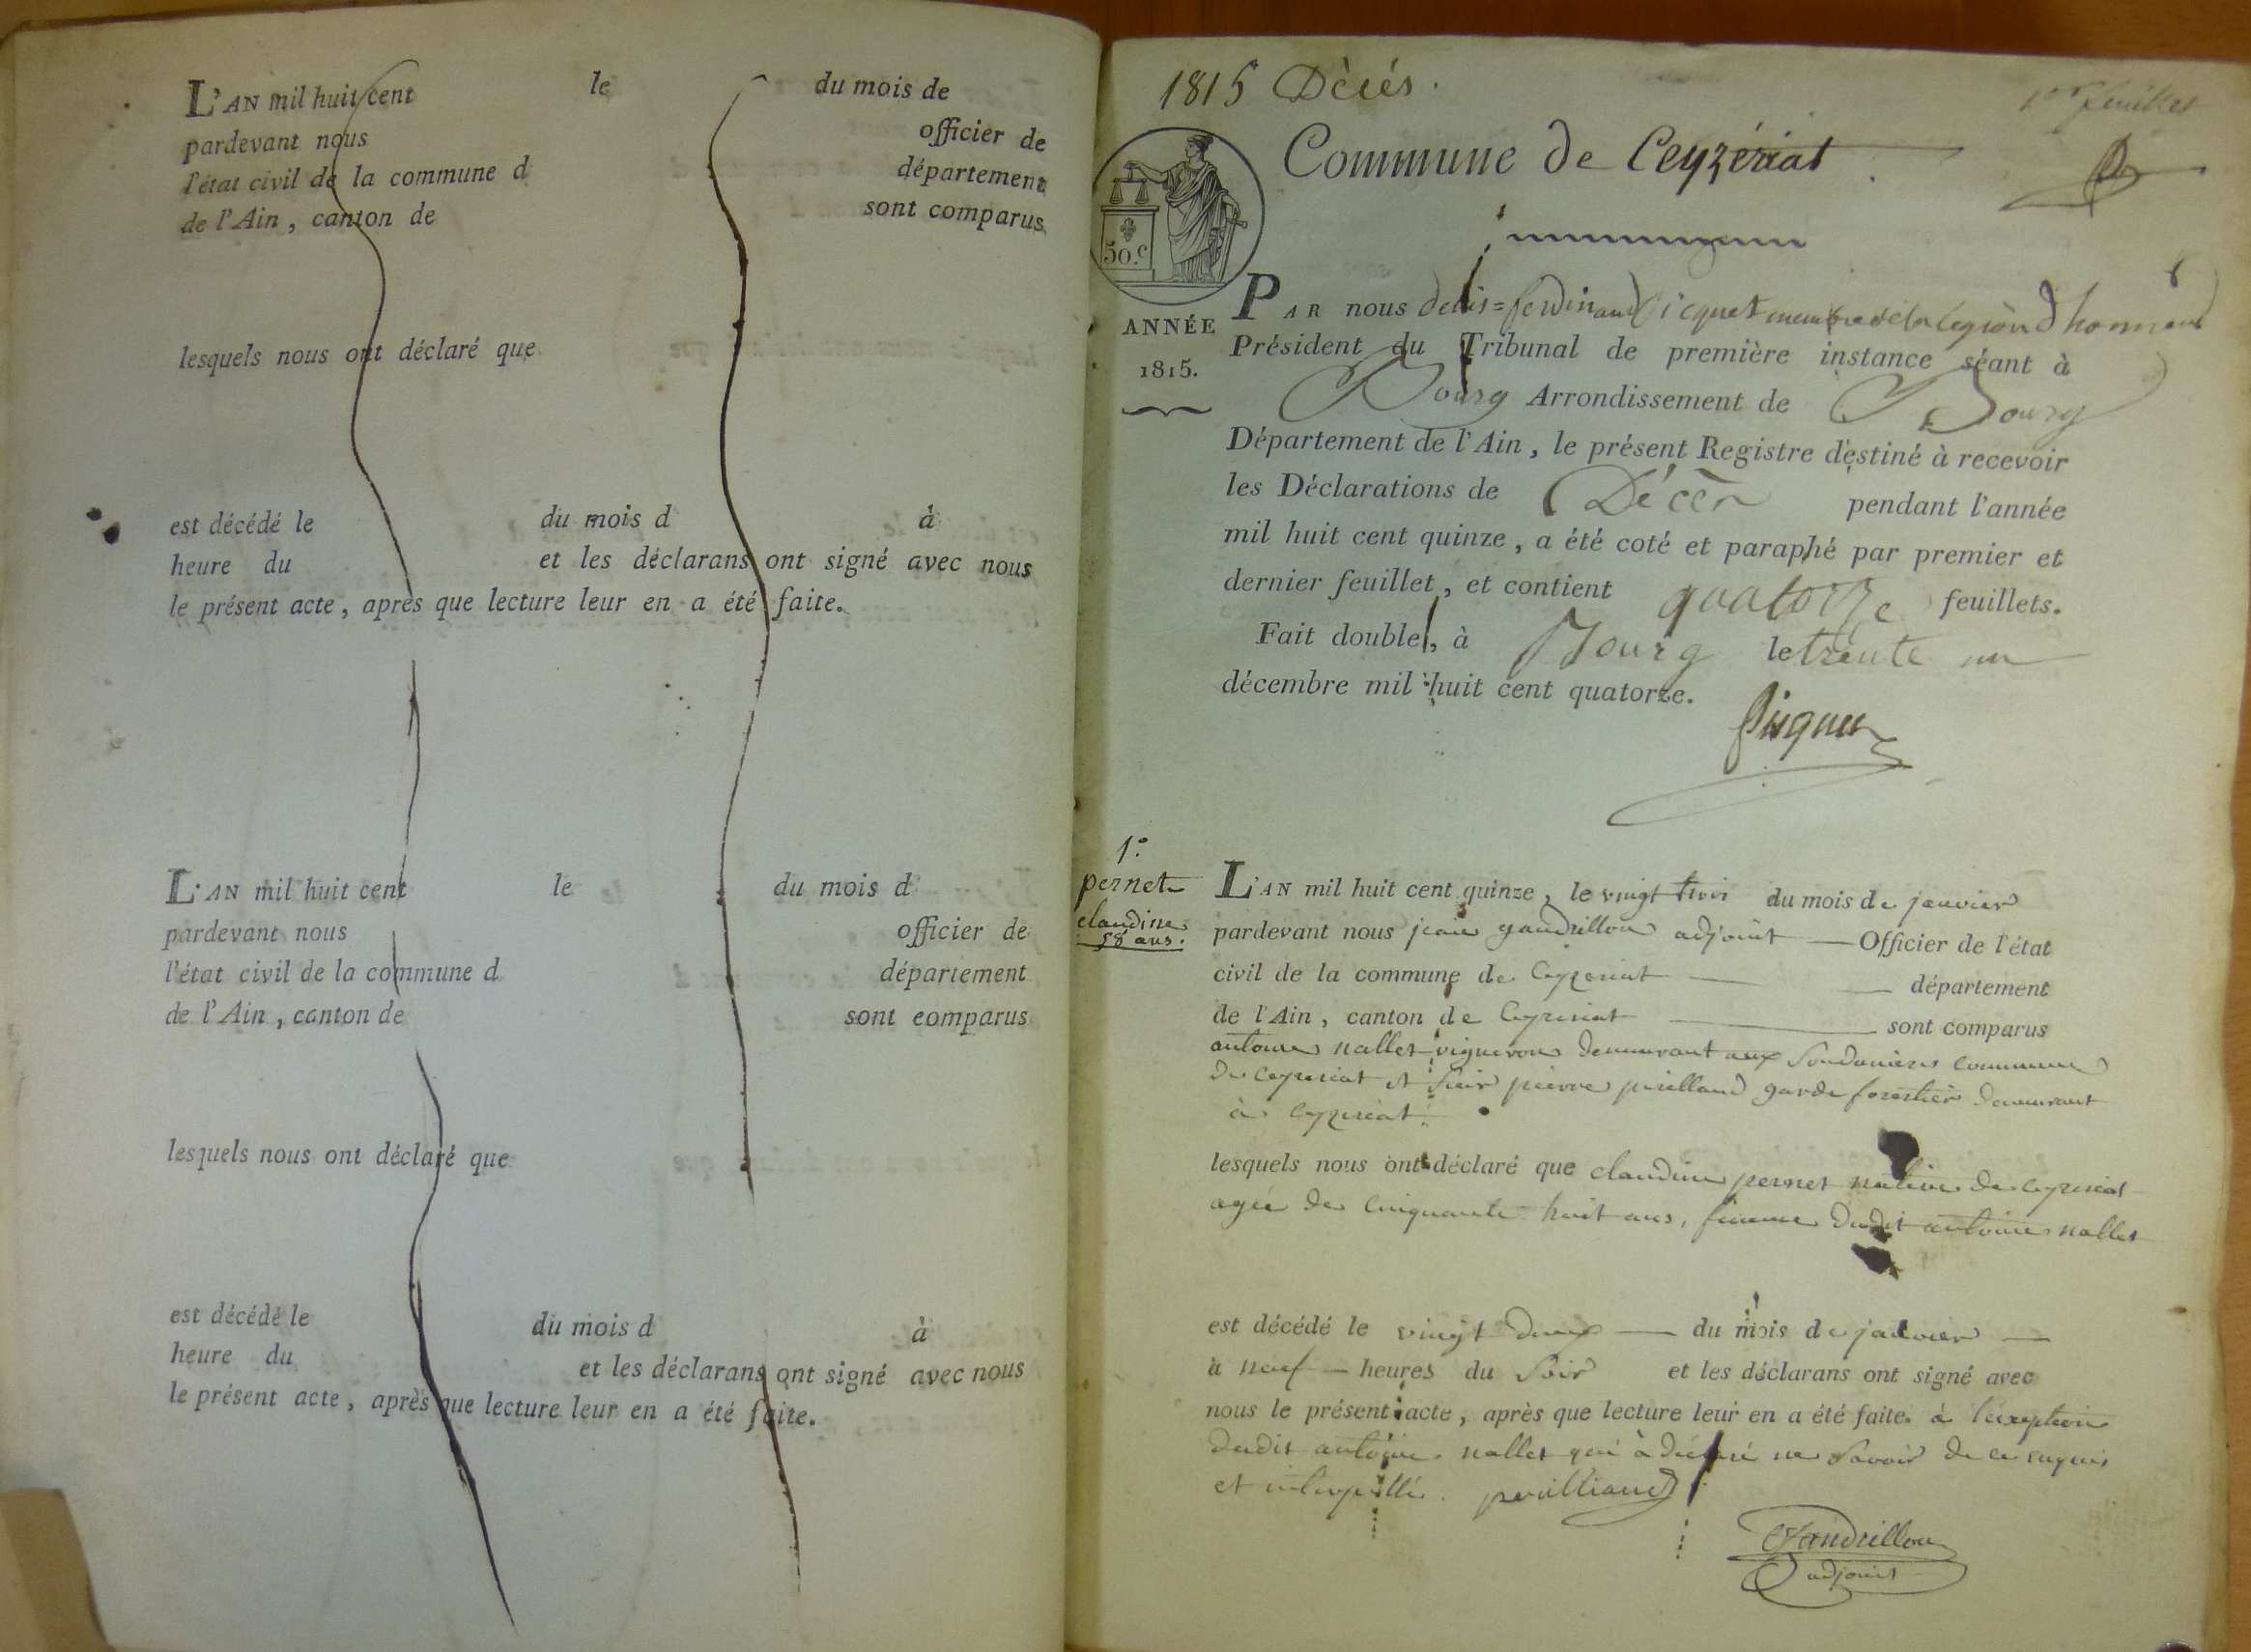 L'AN mil huit cent le du mois de
pardevant nous officier de
l'état civil de la commune d département
de l'Ain, canton de sont comparus
lesquels nous ont déclaré que
est décédé le du mois d à
heure du et les déclarans ont signé avec nous
le présent acte, après que lecture leur en a été faite.
L'AN mil huit cent le du mois d
pardevant nous officier de
l'état civil de la commune d département
de l'Ain, canton de sont comparus
lesquels nous ont déclaré que
est décédé le du mois d à
heure du et les déclarans ont signé avec nous
le présent acte, après que lecture leur en a été faite.
1815 Décés.
1er feuillet
Commune de Ceyzériat
50.c
ANNÉE
1815.
PAR nous denis=ferdinand picquet membre de la légion d'honneur
Président du Tribunal de première instance séant à
Bourg Arrondissement de Bourg
Département de l'Ain, le présent Registre destiné à recevoir
les Déclarations de Décès pendant l'année
mil huit cent quinze, a été coté et paraphé par premier et
dernier feuillet, et contient quatorze feuillets.
Fait double, à Bourg le trente un
décembre mil huit cent quatorze.
Picquet
1.º
pernet
claudine
58 ans.
L'AN mil huit cent quinze, le vingt trois du mois de janvier
pardevant nous jean gandrillon adjoint Officier de l'état
civil de la commune de Ceyzeriat département
de l'Ain, canton de Ceyzeriat sont comparus
antoine nallet vigneron demeurant aux Soudanieres commune
de ceyzeriat et Sieur pierre garde forestier demeurant
à ceyzeriat.
lesquels nous ont déclaré que claudine pernet native de ceyzeriat
agée de Cinquante huit ans, femme dudit antoine nallet
est décédé le vingt deux du mois de janvier
à neuf heures du Soir et les déclarans ont signé avec
nous le présent acte, après que lecture leur en a été faite. à l'éxeption
dudit antoine nallet qui à déclaré ne Savoir de ce requis
et interpellé.
Gandrillon
adjoint